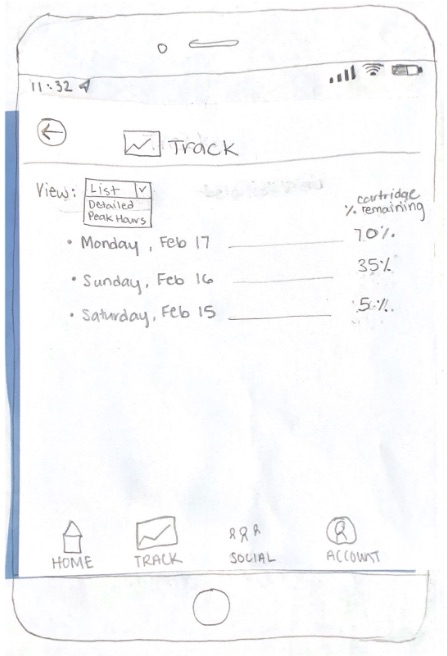 11:32
Track
View: List
Detailed
Peak Hours
cartridge
% remaining
• Monday, Feb 17 70%
• Sunday, Feb 16 35%
• Saturday, Feb 15 5%
HOME TRACK SOCIAL ACCOUNT